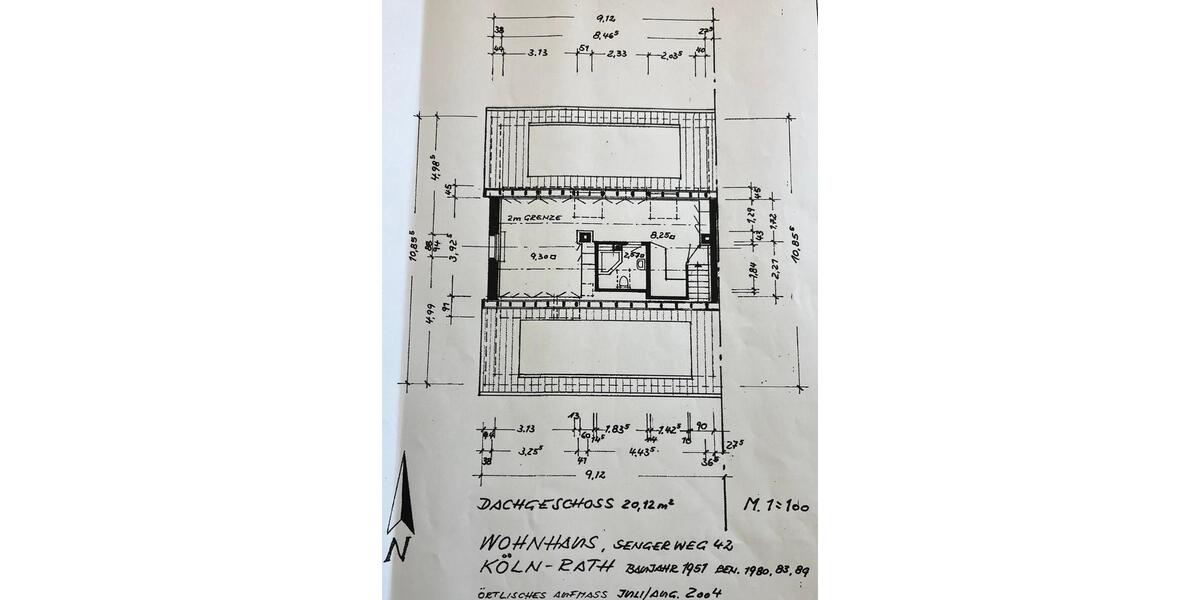 9,12
38 8,46⁵ 27⁵
44 3.13 51 2,33 2,03⁵ 40
4,98⁵
45 45
2m GRENZE
1,29 1,72
8,25□
43
10,85⁵ 88 94 3,92⁵
9,30□ 2,57□
10,85⁵
1,84 2,27
4,99 91
13
44 3.13 60 14⁵ 1.83⁵ 14 1,42⁵ 10 90
38 3,25⁵ 41 4,43⁵ 36⁵ 27⁵
9,12
DACHGESCHOSS 20,12m² M. 1:100
N
WOHNHAUS, SENGER WEG 42
KÖLN-RATH BAUJAHR 1951 REN. 1980, 83, 89
ÖRTLISCHES AUFMASS JULI/AUG. 2004